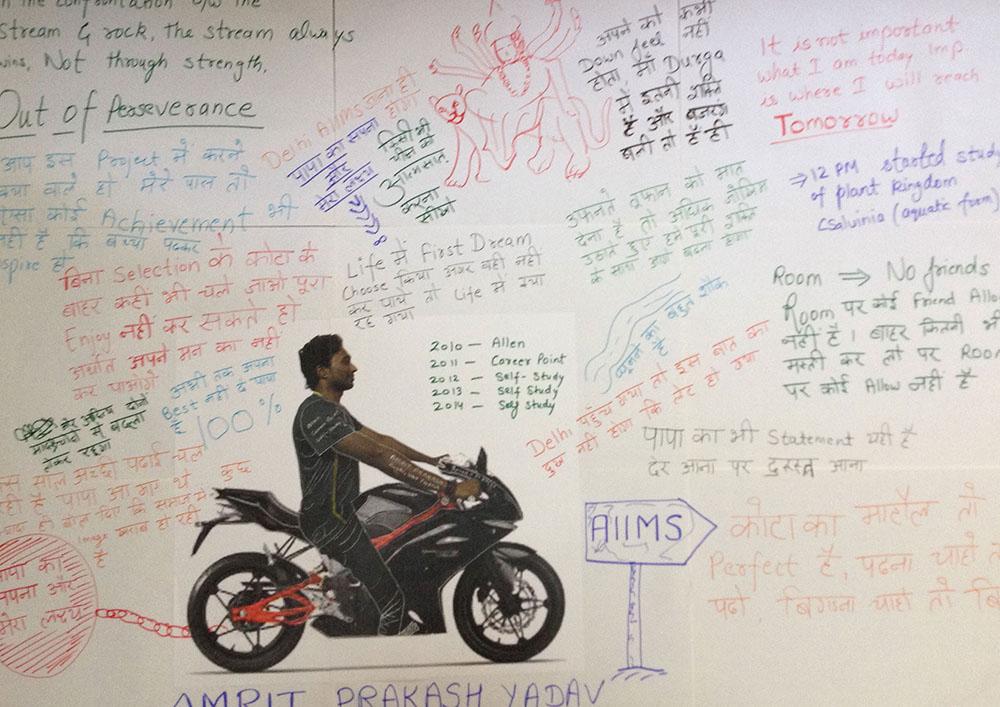 In the confrontation b/w the
stream & rock, the stream always
wins, Not through strength,
Out of Perseverance
आप इस Project में करने
क्या वाले हो मेरे पास तो
ऐसा कोई Achievement भी
नहीं है कि बच्चा पढ़कर
spire हो
Delhi AIIMS जाना ही
होगा
पापा का सपना
और
मेरा लक्ष्य
किसी भी
चीज को
आत्मसात
करना
सीखो
अपने को कभी
Down feel नहीं
होता, माँ Durga
में इतनी शक्ति
है और बजरंग
बली तो है ही
It is not important
what I am today Imp.
is where I will reach
Tomorrow
→ 12 PM started study
of plant kingdom
(Salvinia (aquatic fern)
उफानते तूफान को मात
देना है तो अधिक जोखिम
उठाते हुए हमें पूरी शक्ति
के साथ आगे बढना होगा
बिना Selection के कोटा के
बाहर कहीं भी चले जाओ पूरा
Enjoy नहीं कर सकते हो
अर्थात अपने मन का नहीं
कर पाओगे
Life में First Dream
Choose किया अगर वही नहीं
कर पाये तो Life में क्या
रह गया
घूमने का बहुत शौक
है
Room ⇒ No friends
Room पर कोई Friend Allow
नहीं है। बाहर कितनी भी
मस्ती कर लो पर Room
पर कोई Allow नहीं है
2010 — Allen
2011 — Career Point
2012 — Self-Study
2013 — Self Study
2014 — Self Study
अभी तक अपना
Best नहीं दे पाया
है 100%
लेकर रहूगा
Delhi पहुंच गया तो इस बात का
दुख नहीं होगा कि लेट हो गया
पापा का भी Statement यही है
देर आना पर दुरुस्त आना
इस साल अच्छी पढाई चल
रही है पापा आ गए थे कुछ
बोल दिए कि समाज में
Image खराब हो रही
है
पापा का
सपना और
मेरा लक्ष्य
AIIMS
कोटा का माहौल तो
Perfect है, पढना चाहो तो
पढो, बिगडना चाहो तो
AMRIT PRAKASH YADAV